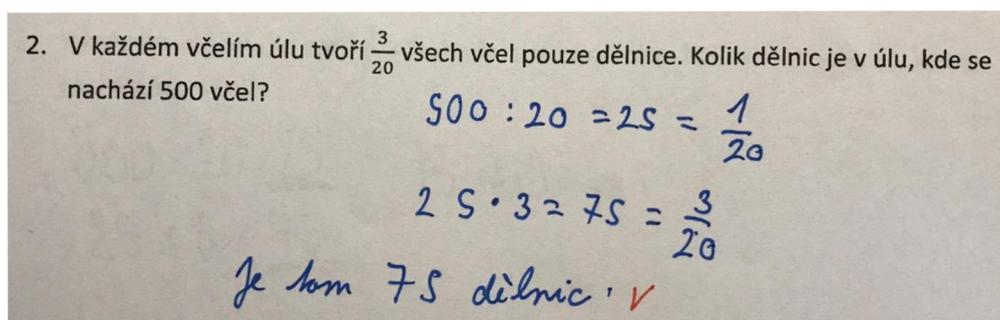 2. V každém včelím úlu tvoří 3/20 všech včel pouze dělnice. Kolik dělnic je v úlu, kde se
nachází 500 včel?
500 : 20 = 25 = 1/20
25 · 3 = 75 = 3/20
Je tam 75 dělnic.